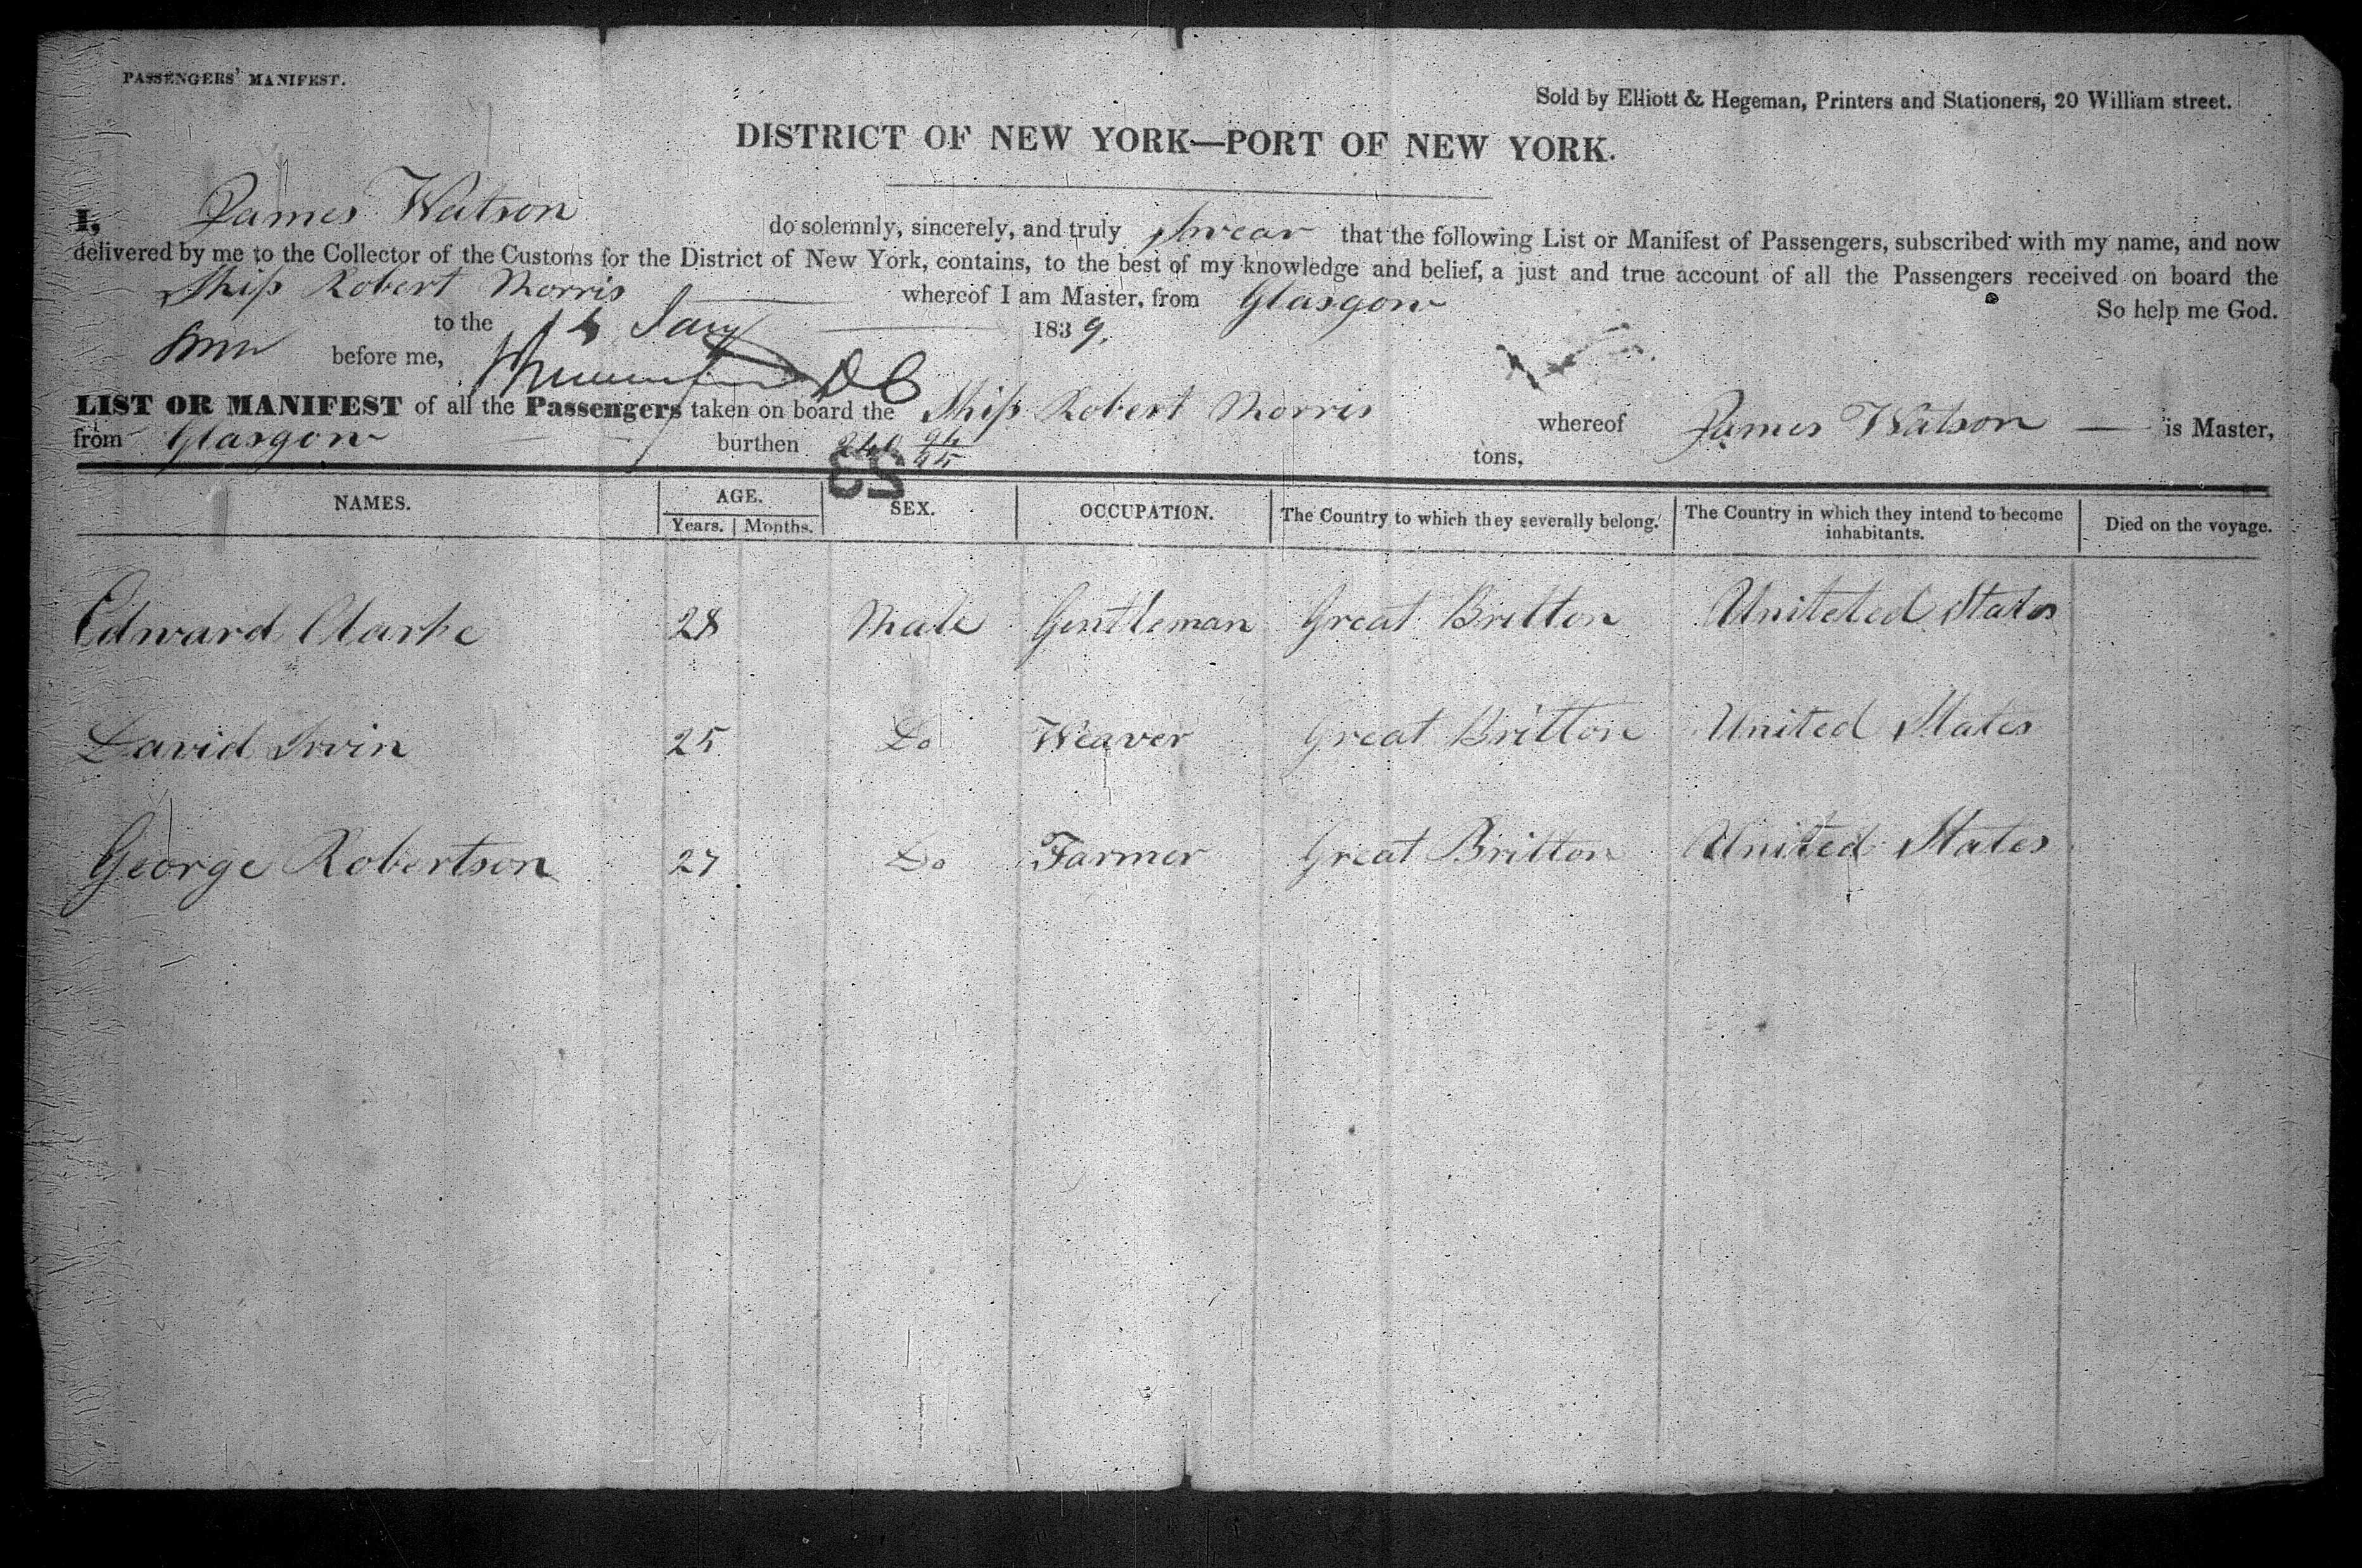 PASSENGERS' MANIFEST.
Sold by Elliott & Hegeman, Printers and Stationers, 20 William street.
DISTRICT OF NEW YORK—PORT OF NEW YORK.
I, James Watson do solemnly, sincerely, and truly swear that the following List or Manifest of Passengers, subscribed with my name, and now
delivered by me to the Collector of the Customs for the District of New York, contains, to the best of my knowledge and belief, a just and true account of all the Passengers received on board the
Ship Robert Morris whereof I am Master, from Glasgow So help me God.
to the Jany 1839.
before me, DC
LIST OR MANIFEST of all the Passengers taken on board the Ship Robert Morris whereof James Watson is Master,
from Glasgow burthen tons,
53
NAMES. AGE. SEX. OCCUPATION. The Country to which they severally belong. The Country in which they intend to become inhabitants. Died on the voyage.
Years. Months.
Edward Clarke 28 Male Gentleman Great Britton Uniteted States
David Irvin 25 Do Weaver Great Britton United States
George Robertson 27 Do Farmer Great Britton United States